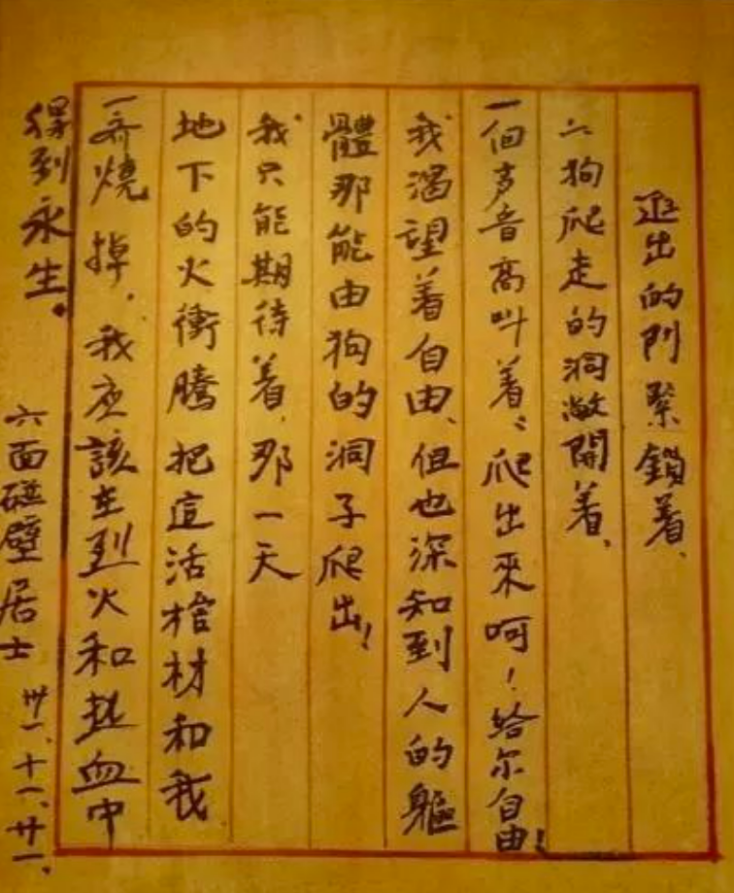 進出的門緊鎖着、
狗爬走的洞敞開着、
一個声音高叫着:爬出來呵!給尔自由!
我渴望着自由、但也深知到人的軀
體那能由狗的洞子爬出!
我只能期待着、那一天
地下的火衝騰把這活棺材和我
一齊燒掉,我应該在烈火和热血中
得到永生。
六面碰壁居士 卅一、十一、廿一、